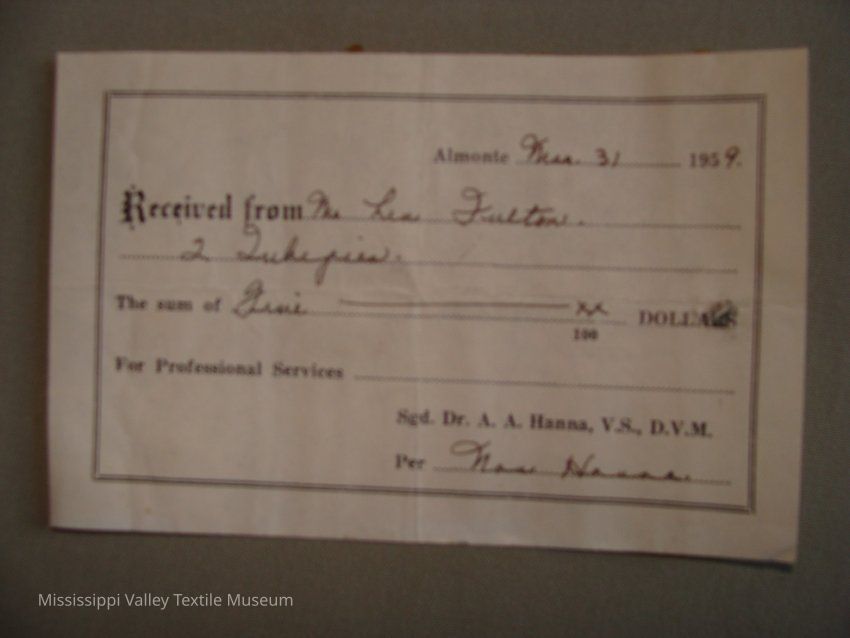 Almonte Mar. 31 1959.
Received from Mr Les Fulton.
2
The sum of Five xx/100 DOLLARS
For Professional Services
Sgd. Dr. A. A. Hanna, V.S., D.V.M.
Per Hanna.
Mississippi Valley Textile Museum